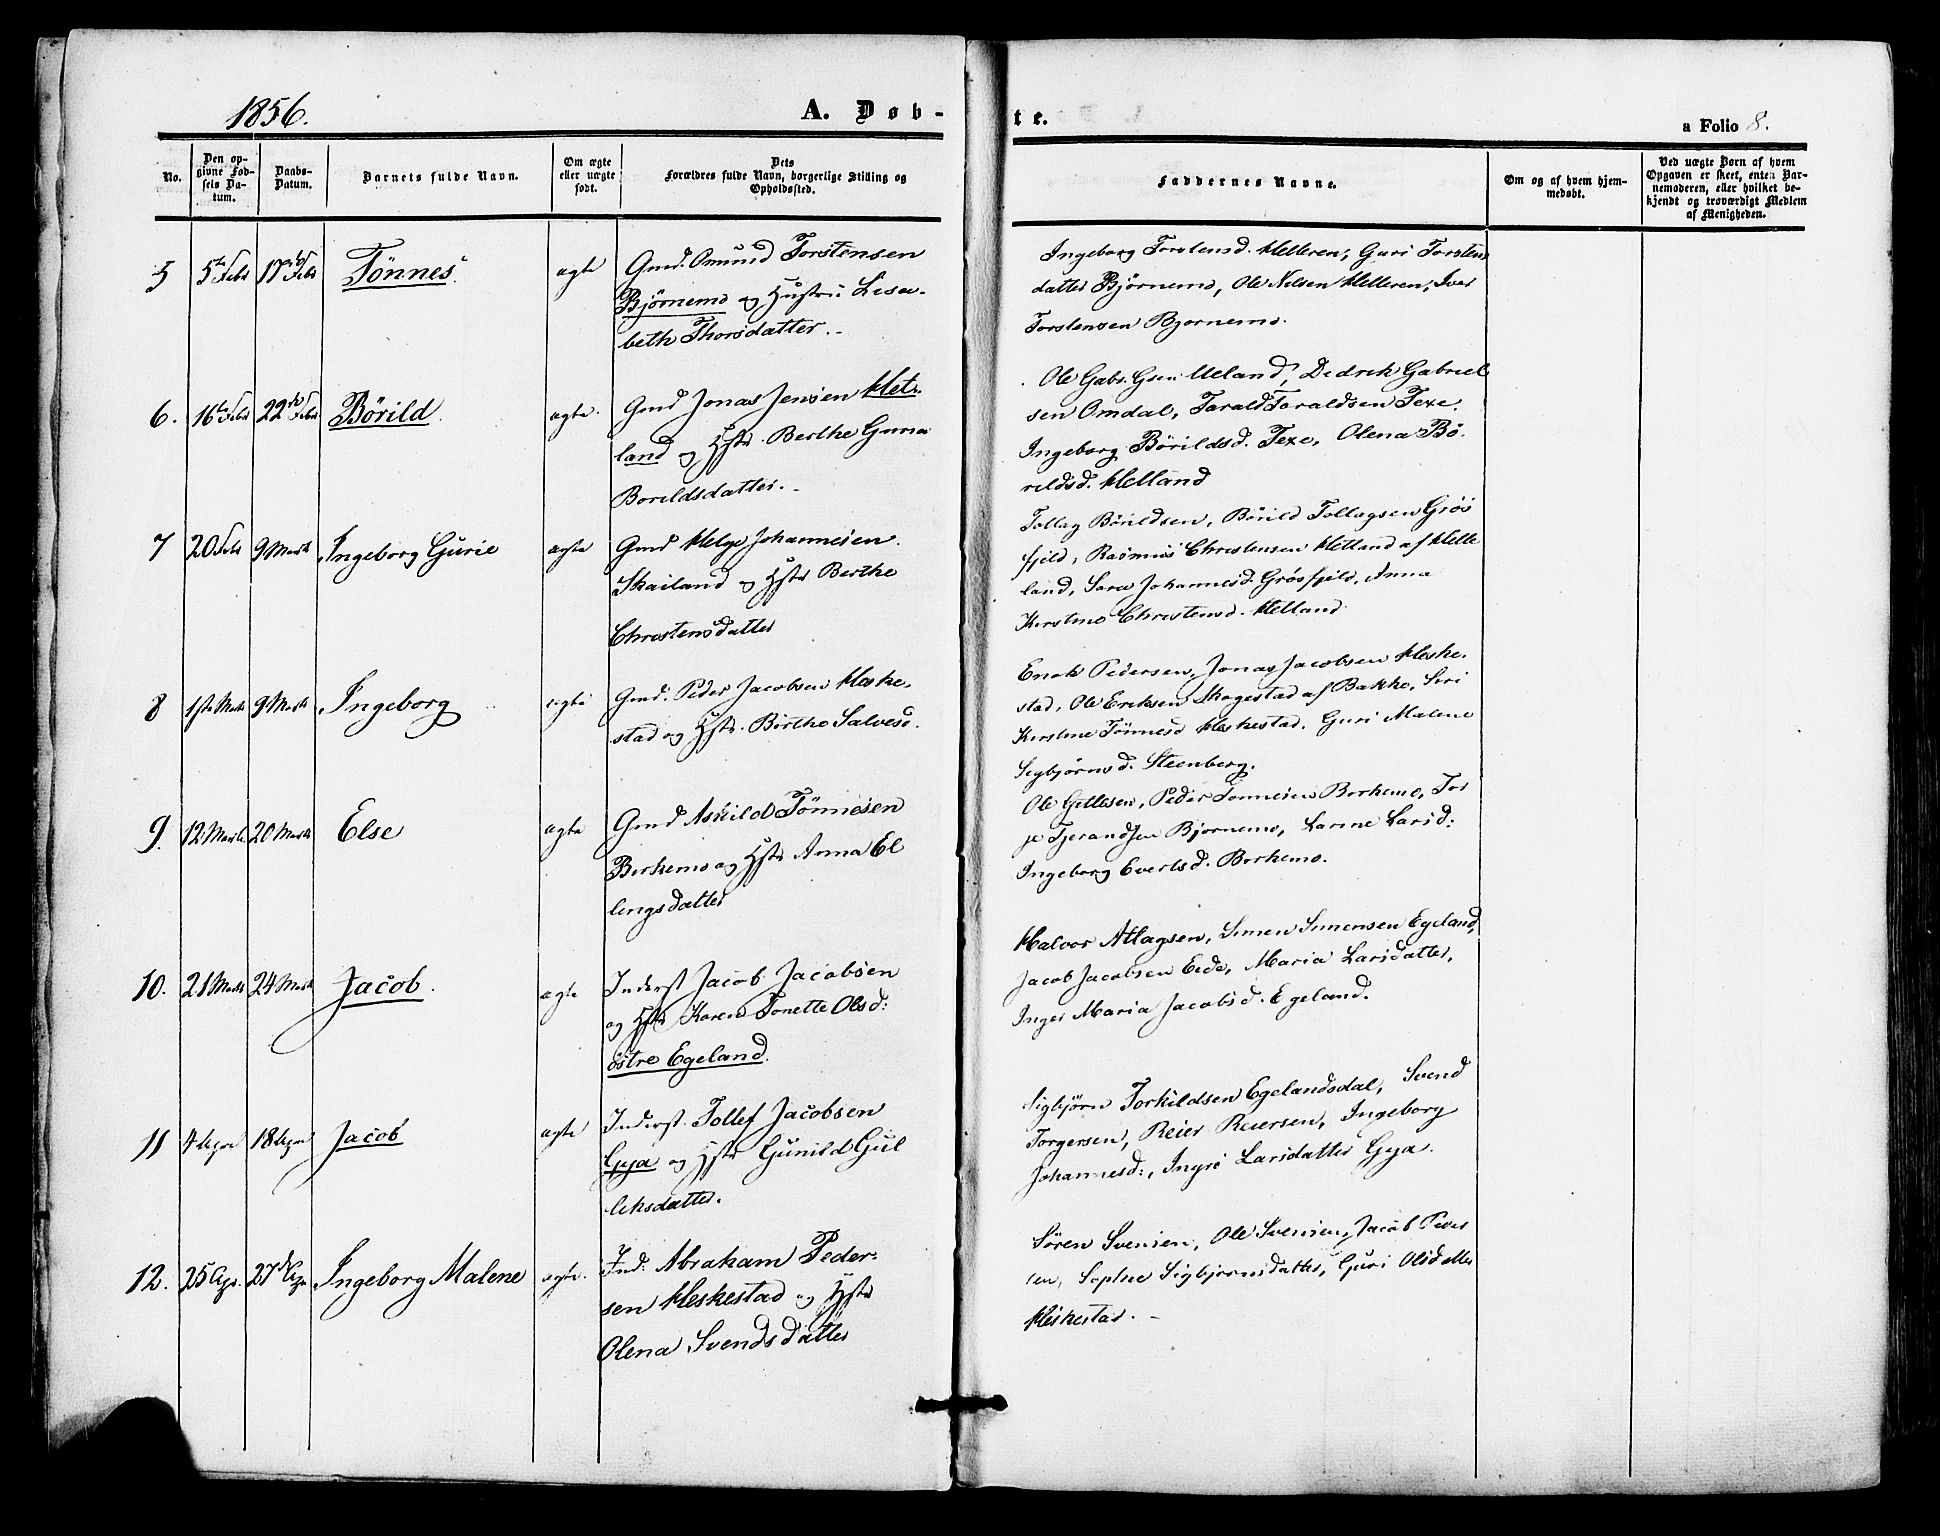 1856.
A. Døb-
te.
a Folio 8.
No.
Den op-
givne Fød-
sels Da-
tum.
Daabs-
Datum.
Barnets fulde Navn.
Om ægte
eller uægte
født.
Dets
Forældres fulde Navn, borgerlige Stilling og
Opholdssted.
Faddernes Navne.
Om og af hvem hjem-
medøbt.
Ved uægte Børn af hvem
Opgaven er skeet, enten Bar-
nemoderen, eller hvilket be-
kjendt og troværdigt Medlem
af Menigheden.
5
5te Febr
17de Febr
Tönnes
ægte
Gmd. Omund Torstensen
Björnemo og Hustru Lisa-
beth Thorsdatter. -
Ingeborg Torstensd. Helleren, Guri Torstens
datter Björnemo, Ole Nilsen Helleren, Iver
Torstensen Bjornemo.
6.
16te Febr
22de Febr
Börild
ægte.
Gmd Jonas Jensen Het-
land og Hstr. Berthe Guria
Borildsdatter. -
Ole Gabr. Gsen Ueland, Didrik Gabriel
sen Omdal, Tarald Taraldsen Texe.
Ingeborg Börildsd. Texe, Olena Bö-
rildsd. Hetland
7
20 Febr
9 Marts
Ingeborg Gurie
ægte
Gmd Helge Johannesen
Skailand og Hstr Berthe
Christensdatter
Tollag Börildsen, Börild Tollagsen Grös
fjeld, Rasmus Christensen Hetland af Helle
land, Sara Johannesd. Grösfjeld, Anna
Kirstine Christensd. Hetland.
8
1ste Marts
9 Marts
Ingeborg
ægte
Gmd. Peder Jacobsen Heske-
stad og Hstr. Birthe Salvesd.
Enok Pedersen, Jonas Jacobsen Heske-
stad, Ole Eriksen Skogestad af Bakke, Siri
Kirstine Tönnesd Heskestad, Guri Malene
Sigbjörnsd. Steenberg.
9.
12 Marts
20 Marts
Else
ægte
Gmd Askild Tönnesen
Birkemo og Hstr Anna El
lingsdatter
Ole Gitlesen, Peder Tonnesen Birkemo, Tor
je Tjerandsen Bjornemo, Larine Larsd:
Ingeborg Evertsd. Birkemo.
10.
21 Marts
24 Marts
Jacob.
ægte
Inderst Jacob Jacobsen
og Hstr Karen Tonette Olsd:
östre Egeland.
Halvor Atlagsen, Simen Simensen Egeland,
Jacob Jacobsen Eide, Maria Larsdatter,
Inger Maria Jacobsd. Egeland.
11
4 Apre
18 Apre
Jacob
ægte
Inderst. Tollef Jacobsen
Gya og Hstr Gunild Gul
leksdatter.
Sigbjörn Torkildsen Egelandsdal, Svend
Torgersen, Reier Reiersen, Ingeborg
Johannesd:, Larsdatter Gya.
12.
25 Apr.
27de Apr
Ingeborg Malene
ægte.
Ind. Abraham Peder-
sen Heskestad og Hstr
Olena Svendsdatter
Sören Svensen, Ole Svensen, Jacob Peder
sen, Sophie Sigbjornsdatter, Guri Olsdatter
Heskestad. -